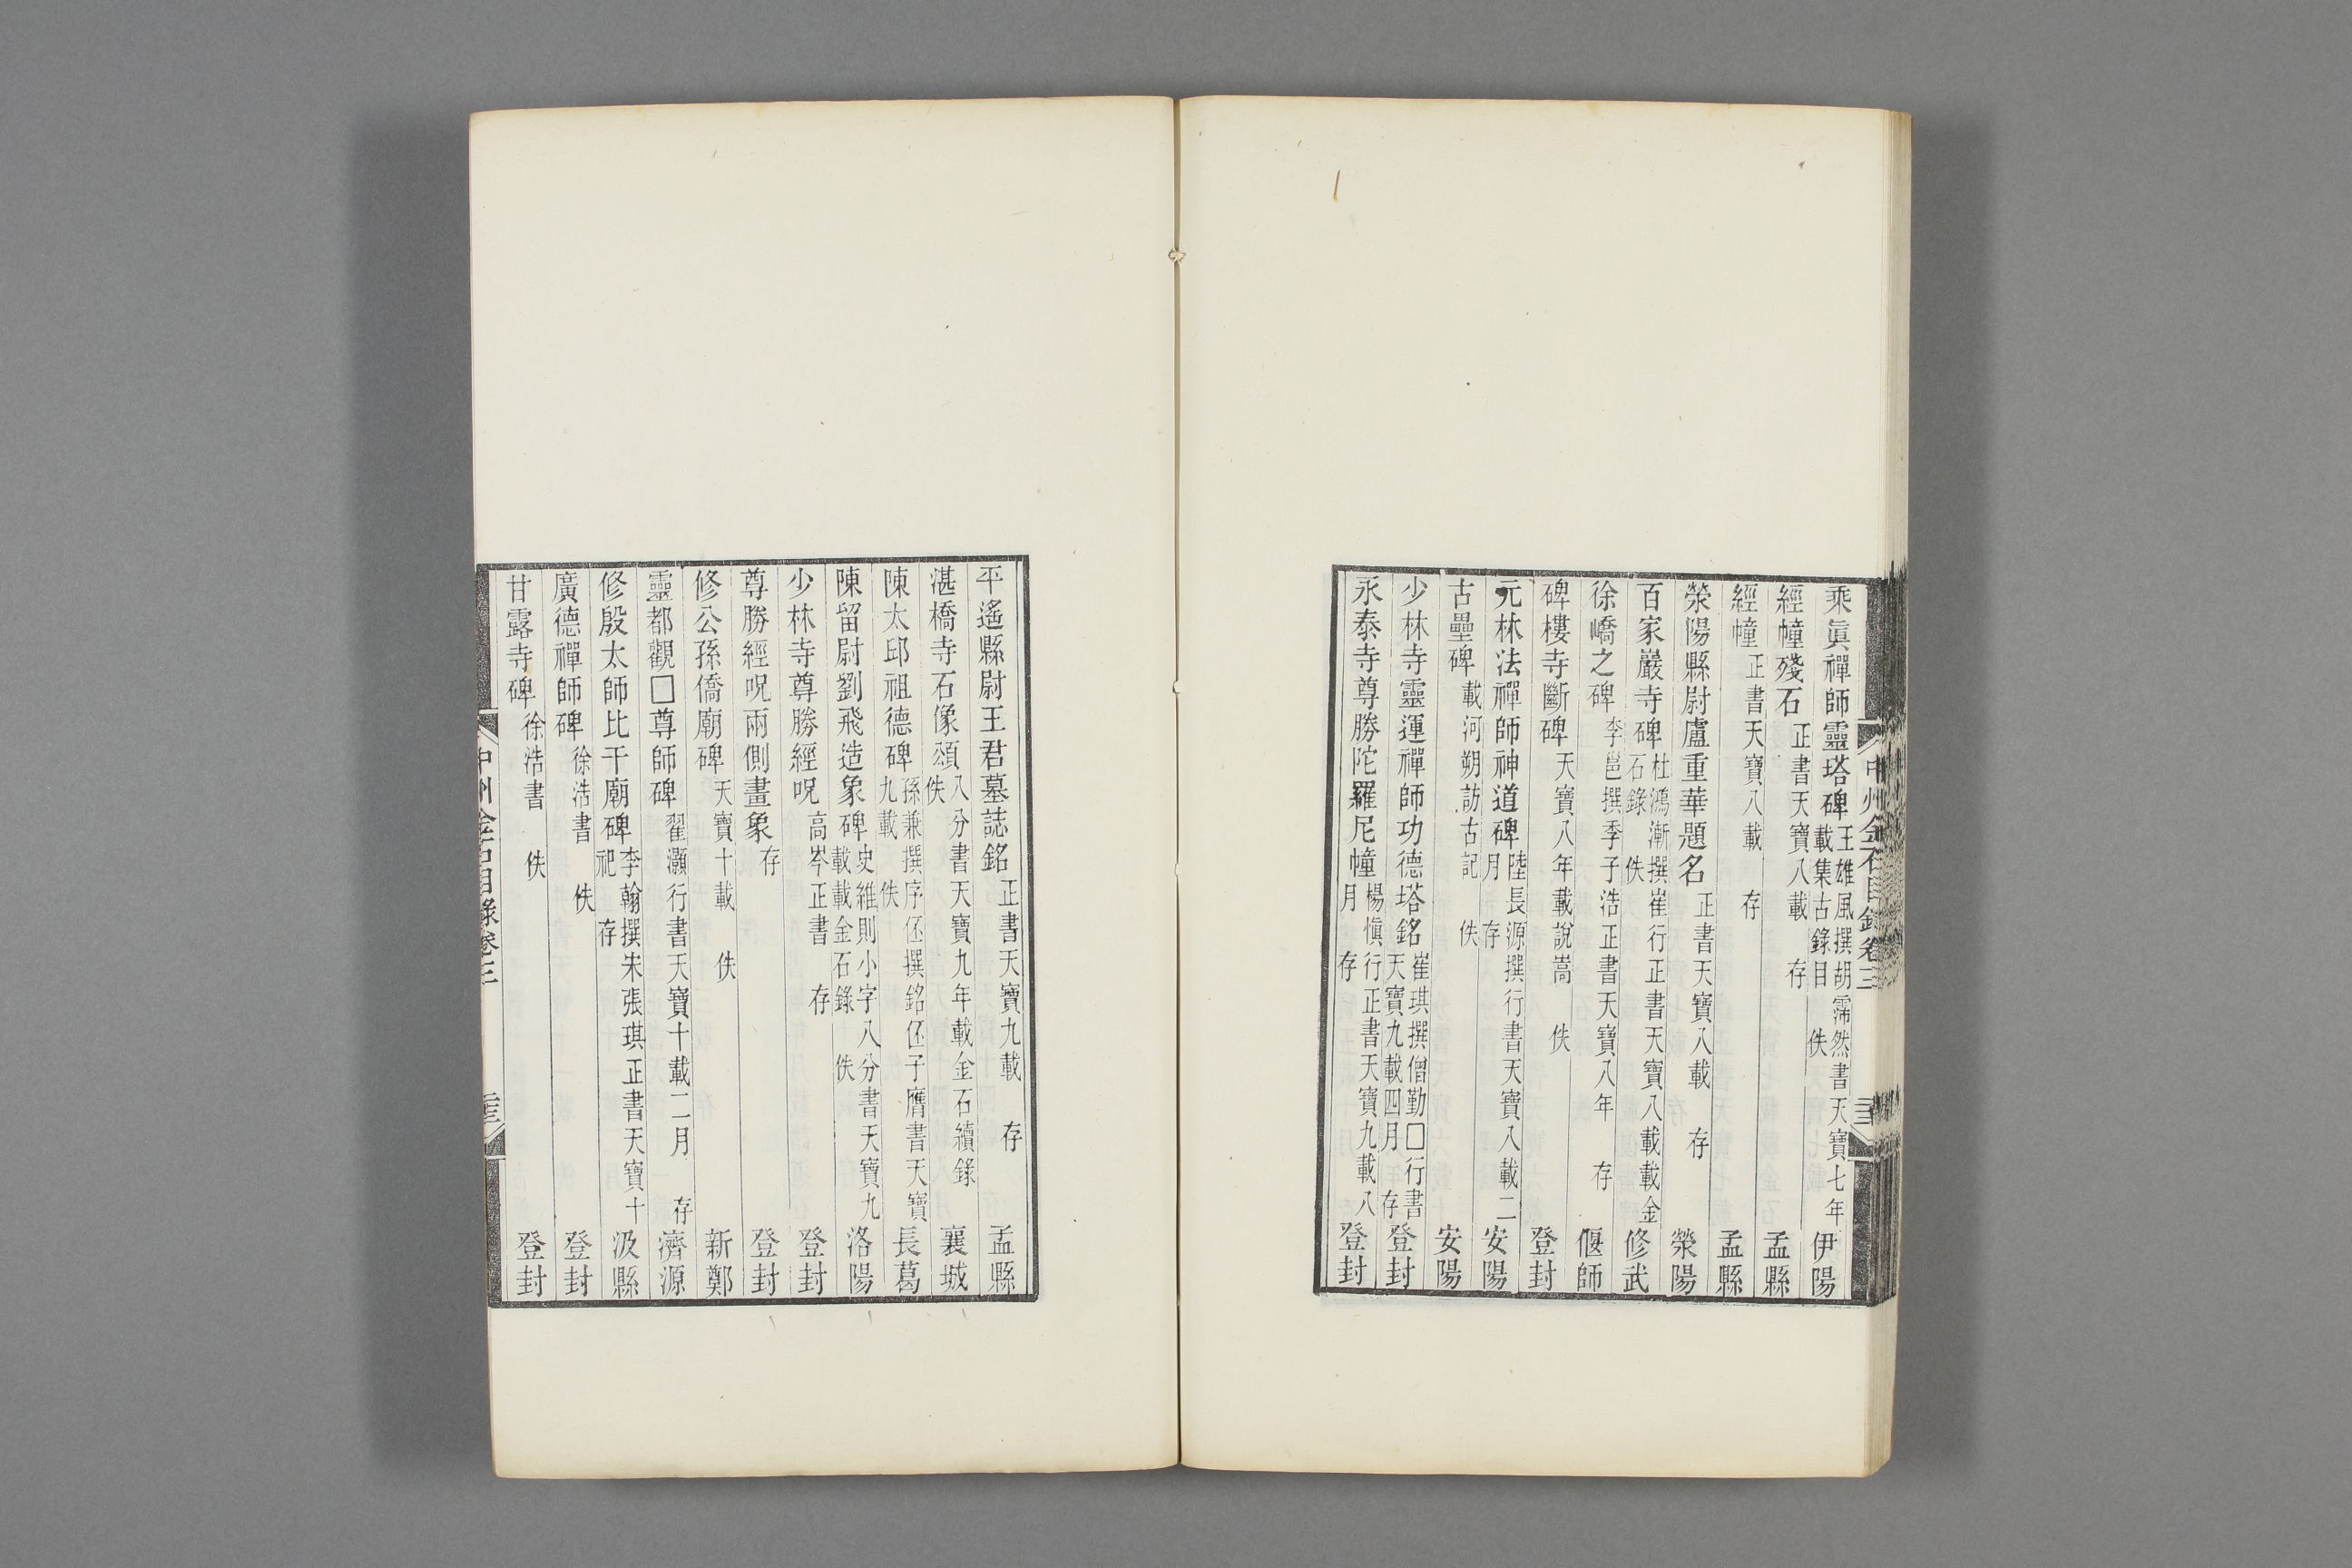 乘眞禪師靈塔碑王雄風撰胡霈然書天寶七年載集古錄目 佚 伊陽
經幢殘石正書天寶八載 存 孟縣
經幢正書天寶八載 存 孟縣
滎陽縣尉盧重華題名正書天寶八載 存 滎陽
百家巖寺碑杜鴻漸撰崔行正書天寶八載載金石錄 佚 修武
徐嶠之碑李邕撰季子浩正書天寶八年 存 偃師
碑樓寺斷碑天寶八年載說嵩 佚 登封
元林法禪師神道碑陸長源撰行書天寶八載二月 存 安陽
古壘碑載河朔訪古記 佚 安陽
少林寺靈運禪師功德塔銘崔琪撰僧勤□行書天寶九載四月 存 登封
永泰寺尊勝陀羅尼幢楊愼行正書天寶九載八月 存 登封
中州金石目錄卷三
平遙縣尉王君墓誌銘正書天寶九載 存 孟縣
湛橋寺石像頌八分書天寶九年載金石續錄 佚 襄城
陳太邱祖德碑孫兼撰序伾撰銘伾子膺書天寶九載 佚 長葛
陳留尉劉飛造象碑史維則小字八分書天寶九載載金石錄 佚 洛陽
少林寺尊勝經呪高岑正書 存 登封
尊勝經呪兩側畫象存 登封
修公孫僑廟碑天寶十載 佚 新鄭
靈都觀□尊師碑翟灝行書天寶十載二月 存 濟源
修殷太師比干廟碑李翰撰宋張琪正書天寶十祀 存 汲縣
廣德禪師碑徐浩書 佚 登封
甘露寺碑徐浩書 佚 登封
中州金石目錄卷三